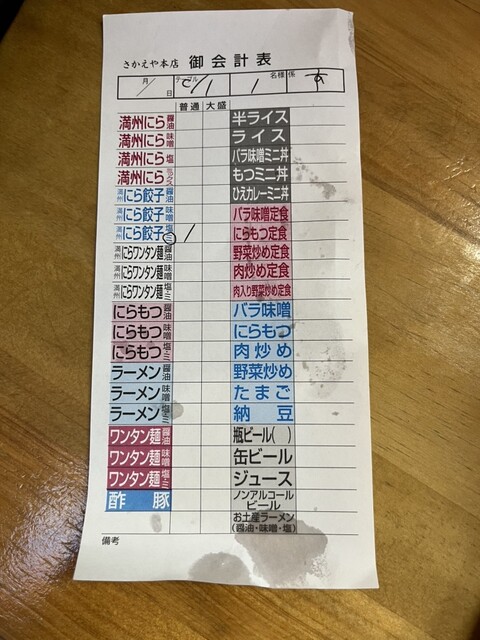 さかえや本店 御会計表
月/日 テーブル C/1 1 名様 係 す
普通 大盛
満州にら 醤油 半ライス
満州にら 味噌 ライス
満州にら 塩 バラ味噌ミニ丼
満州にら もつミニ丼
満州にら餃子 醤油 ひえカレーミニ丼
満州にら餃子 味噌 バラ味噌定食
満州にら餃子 塩・ミ / にらもつ定食
満州にらワンタン麺 醤油 野菜炒め定食
満州にらワンタン麺 味噌 肉炒め定食
満州にらワンタン麺 塩・ミ 肉入り野菜炒め定食
にらもつ 醤油 バラ味噌
にらもつ 味噌 にらもつ
にらもつ 塩・ミ 肉炒め
ラーメン 醤油 野菜炒め
ラーメン 味噌 たまご
ラーメン 塩・ミ 納豆
ワンタン麺 醤油 瓶ビール( )
ワンタン麺 味噌 缶ビール
ワンタン麺 塩・ミ ジュース
酢豚 ノンアルコールビール
お土産ラーメン
(醤油・味噌・塩)
備考